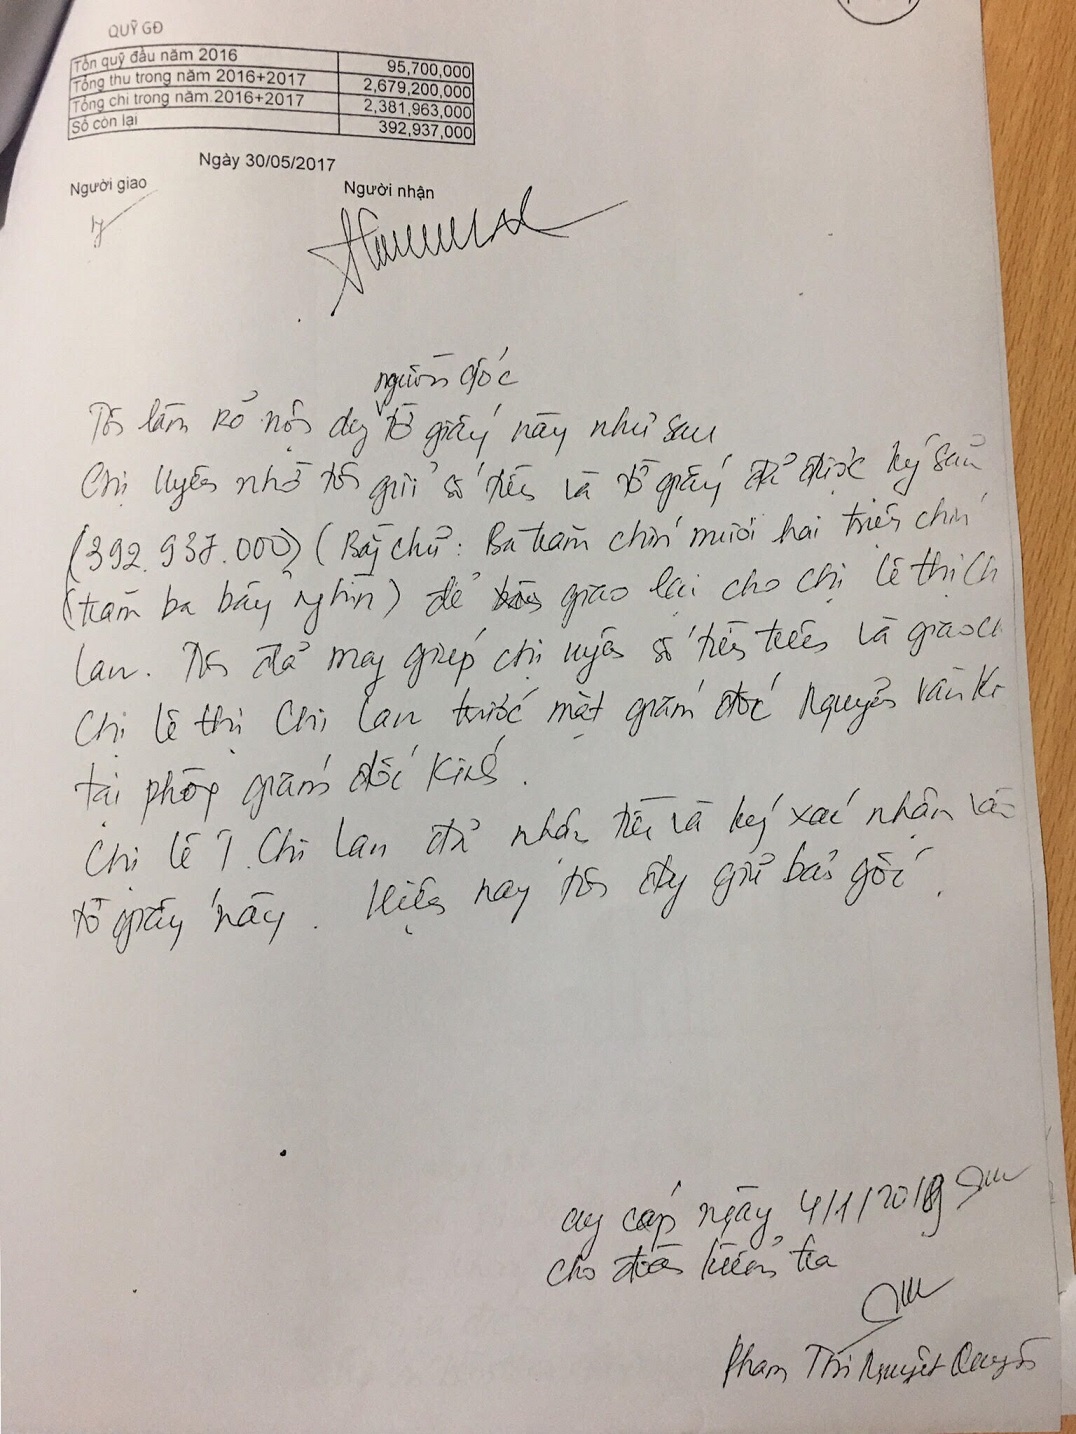 QUỸ GĐ
Tồn quỹ đầu năm 2016 95,700,000
Tổng thu trong năm 2016+2017 2,679,200,000
Tổng chi trong năm 2016+2017 2,381,963,000
Số còn lại 392,937,000
Ngày 30/05/2017
Người giao Người nhận
nguồn gốc
Tôi làm rõ nội dg tờ giấy này như sau
Chị Uyên nhờ tôi gửi số tiền và tờ giấy đã được ký sẵn
(392.937.000) (Bằg chữ: Ba trăm chín mươi hai triệu chín
(trăm ba bảy nghìn) để giao lại cho chị lê thị Ch
lan. Tôi đã mag giúp chị uyên số tiền trên và giao ch
Chị lê thị Chi lan trước mặt giám đốc Nguyễn Văn K
tại phòg giám đốc Kính.
Chị lê T. Chi lan đã nhận tiền và ký xác nhận vào
tờ giấy này. Hiện nay tôi đg giữ bản gốc.
cug cấp ngày 4/1/2019
cho đoàn kiểm tra
Phạm Thị Nguyệt Quyên